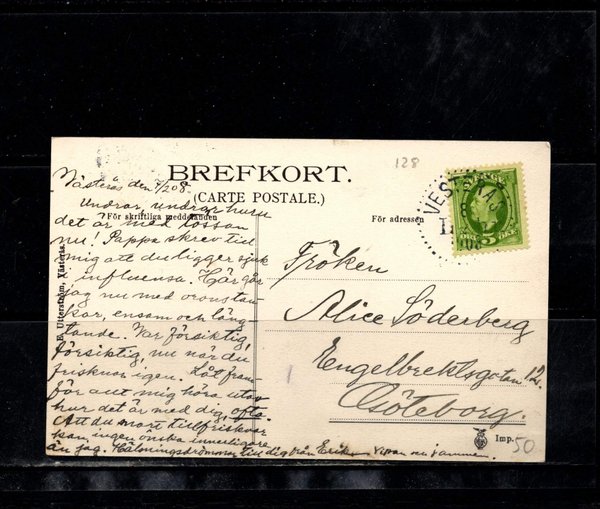 128
BREFKORT.
(CARTE POSTALE.)
För skriftliga meddelanden
För adressen
Västerås den 7/2 08.
Undrar, undrar huru
det är med tössan
nu! Pappa skrev till
mig att du ligger sjuk
i influensa. Här går
jag nu med
kar, ensam och läng-
tande. Var försiktig,
försiktig, nu när du
frisknar igen. Låt fram-
för allt mig höra utav
hur det är med dig, ofta.
Att du snart tillfrisknar
kan ingen önska innerligare
än jag. till dig från Erik.
Fröken
Alice Söderberg
Engelbrektsgatan 12.
Göteborg.
E. Utterström, Västerås.
VEST
5
Imp.
50